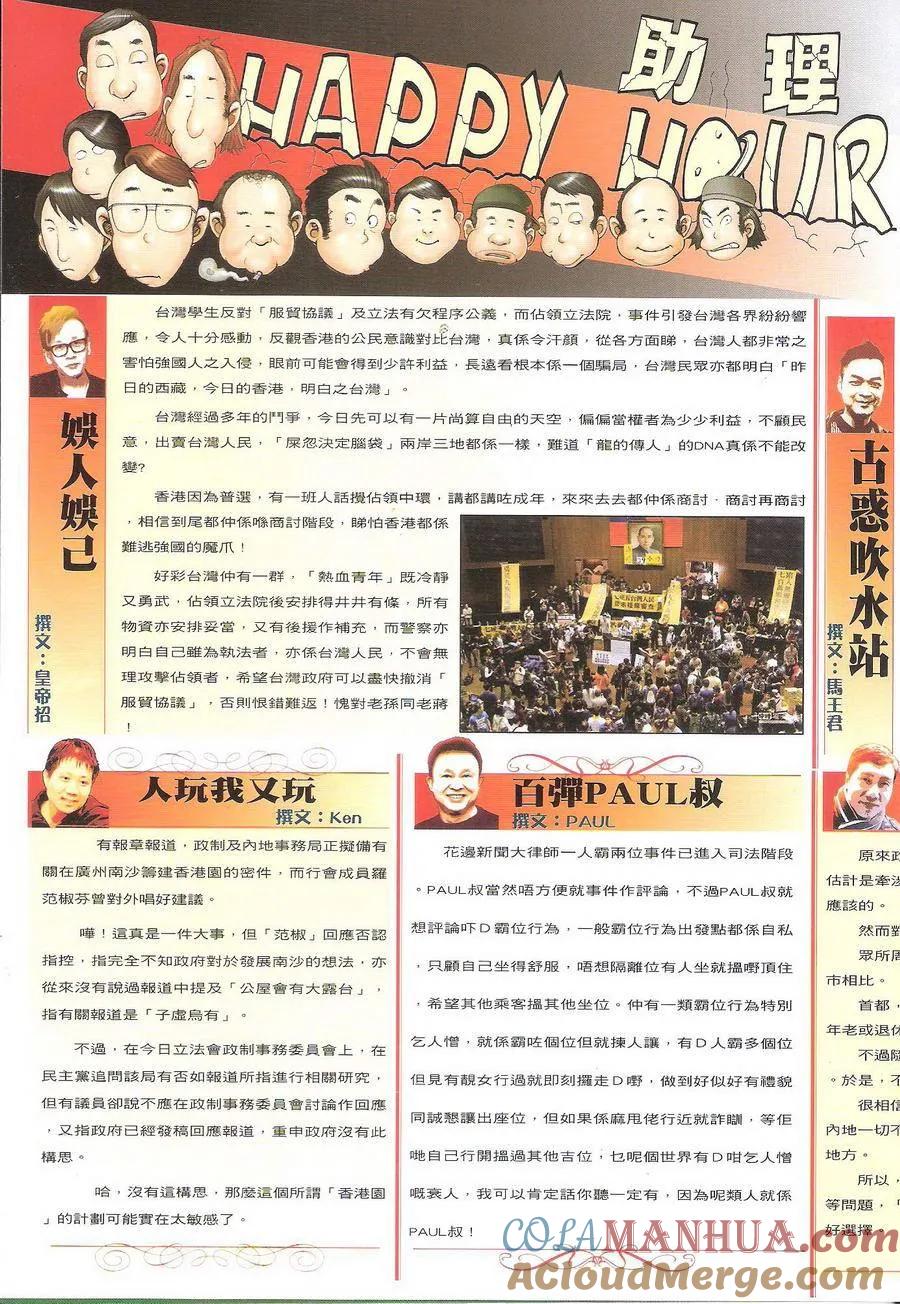 HAPPY 助理
HOUR
娛人娛己
撰文：皇帝招
台灣學生反對「服貿協議」及立法有欠程序公義，而佔領立法院，事件引發台灣各界紛紛響
應，令人十分感動，反觀香港的公民意識對比台灣，真係令汗顏，從各方面睇，台灣人都非常之
害怕強國人之入侵，眼前可能會得到少許利益，長遠看根本係一個騙局，台灣民眾亦都明白「昨
日的西藏，今日的香港，明白之台灣」。
台灣經過多年的鬥爭，今日先可以有一片尚算自由的天空，偏偏當權者為少少利益，不顧民
意，出賣台灣人民，「屎忽決定腦袋」兩岸三地都係一樣，難道「龍的傳人」的DNA真係不能改
變?
香港因為普選，有一班人話攪佔領中環，講都講咗成年，來來去去都仲係商討．商討再商討
，相信到尾都仲係喺商討階段，睇怕香港都係
難逃強國的魔爪！
好彩台灣仲有一群，「熱血青年」既冷靜
又勇武，佔領立法院後安排得井井有條，所有
物資亦安排妥當，又有後援作補充，而警察亦
明白自己雖為執法者，亦係台灣人民，不會無
理攻擊佔領者，希望台灣政府可以盡快撤消「
服貿協議」，否則恨錯難返！愧對老孫同老蔣
！
古惑吹水站
撰文：馬王君
人玩我又玩
撰文：Ken
有報章報道，政制及內地事務局正擬備有
關在廣州南沙籌建香港園的密件，而行會成員羅
范椒芬曾對外唱好建議。
嘩！這真是一件大事，但「范椒」回應否認
指控，指完全不知政府對於發展南沙的想法，亦
從來沒有說過報道中提及「公屋會有大露台」，
指有關報道是「子虛烏有」。
不過，在今日立法會政制事務委員會上，在
民主黨追問該局有否如報道所指進行相關研究，
但有議員卻說不應在政制事務委員會討論作回應
，又指政府已經發稿回應報道，重申政府沒有此
構思。
哈，沒有這構思，那麼這個所謂「香港園
」的計劃可能實在太敏感了。
百彈PAUL叔
撰文：PAUL
花邊新聞大律師一人霸兩位事件已進入司法階段
。PAUL叔當然唔方便就事件作評論，不過PAUL叔就
想評論吓D霸位行為，一般霸位行為出發點都係自私
，只顧自己坐得舒服，唔想隔離位有人坐就搵嘢頂住
，希望其他乘客搵其他坐位。仲有一類霸位行為特別
乞人憎，就係霸咗個位但就揀人讓，有D人霸多個位
但見有靚女行過就即刻攞走D嘢，做到好似好有禮貌
同誠懇讓出座位，但如果係麻甩佬行近就詐瞓，等佢
哋自己行開搵過其他吉位，乜呢個世界有D咁乞人憎
嘅衰人，我可以肯定話你聽一定有，因為呢類人就係
PAUL叔！
原來政
估計是牽涉
應該的。
然而對
眾所周
市相比。
首都，
年老或退休
不過隨
。於是，不
很相信
內地一切不
地方。
所以，
等問題，「
好選擇。
COLAMANHUA.com
ACloudMerge.com